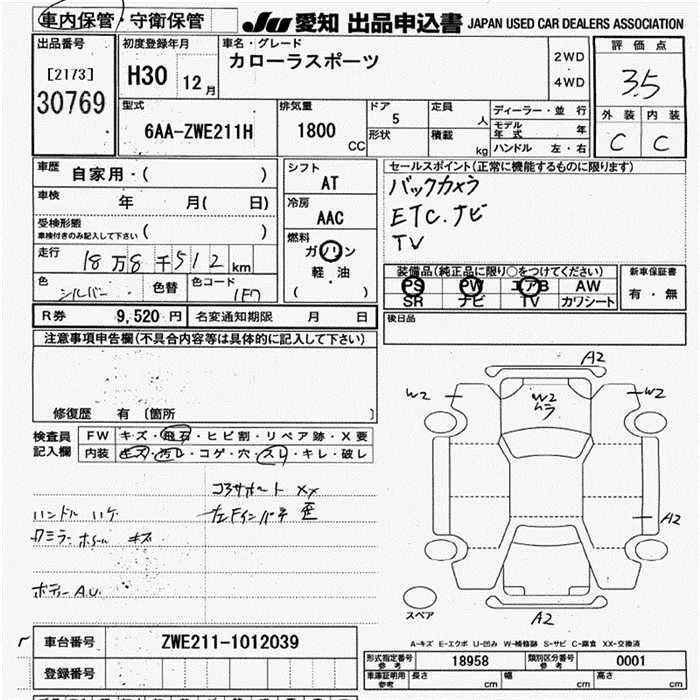 車内保管・守衛保管 JU 愛知 出品申込書 JAPAN USED CAR DEALERS ASSOCIATION
出品番号 初度登録年月 車名・グレード 評価点
[2173] H30 12月 カローラスポーツ 2WD ・ 4WD 3.5
30769
型式 排気量 ドア 定員 ディーラー・並行 外装 内装
6AA-ZWE211H 1800 CC 5 人 モデル年式 年 C C
形状 積載 kg ハンドル 左・右
車歴 自家用・( ) シフト AT セールスポイント(正常に機能するものに限ります)
車検 年 月( 日) 冷房 AAC バックカメラ
受検形態 ( ) ETC.ナビ
車検付きのみ記入して下さい 燃料 TV
走行 18万8千512km ガソリン
軽・油
( )
装備品(純正品に限り○をつけてください) 新車保証書
色 シルバー 色替 色コード 1F7 PS PW エアB AW 有・無
SR ナビ TV カワシート
R券 9,520円 名変通知期限 月 日 後日品
注意事項申告欄(不具合内容等は具体的に記入して下さい)
修復歴 有 〔箇所 〕
検査員記入欄 FW キズ・飛石・ヒビ割・リペア跡・X要
内装 キズ・汚レ・コゲ・穴・スレ・キレ・破レ
A2
W2 W2 ムラ W2
コアサポート XX
ハンドル ハゲ 左Fインパネ 歪
ホイール キズ
A2
ボディー A.U.
スペア A2
A-キズ E-エクボ U-凹み W-補修跡 S-サビ C-腐食 XX-交換済
車台番号 ZWE211-1012039
型式指定番号 参考 18958 類別区分番号 参考 0001
登録番号 車庫証明用 参考 長さ cm 幅 cm 高さ cm